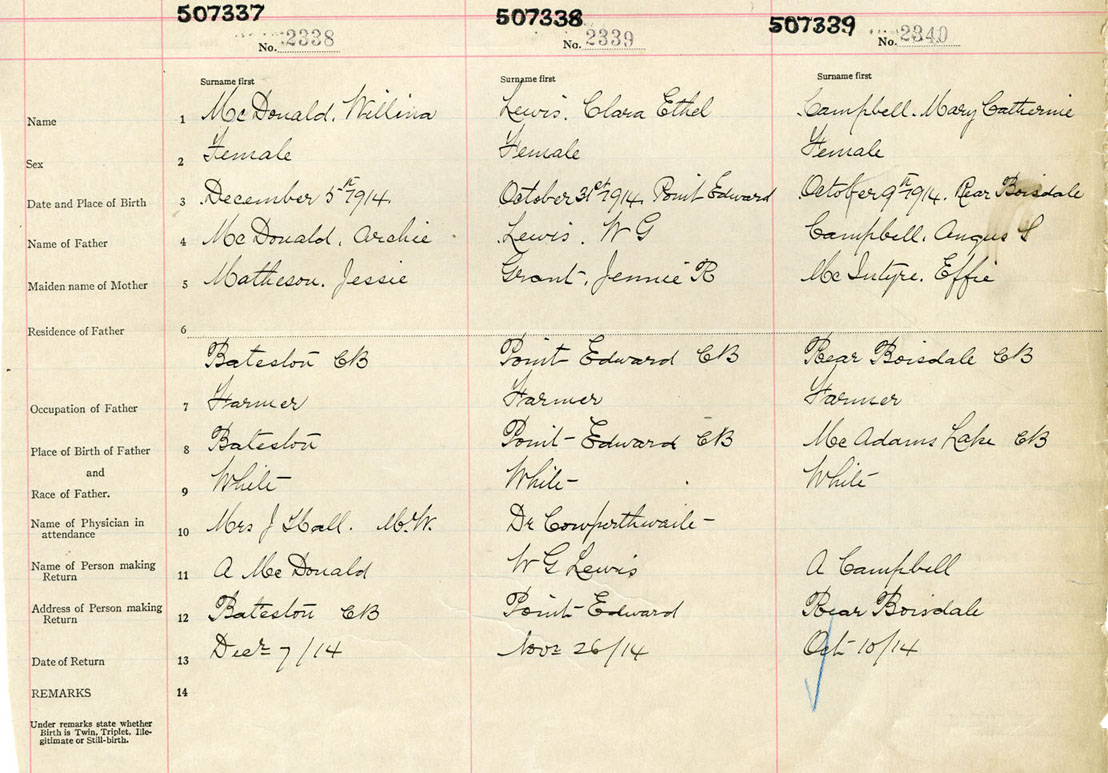 507337 507338 507339
No. 2338 No. 2339 No. 2340
Surname first Surname first Surname first
Name 1 McDonald, Willina Lewis. Clara Ethel Campbell. Mary Catherine
Sex 2 Female Female Female
Date and Place of Birth 3 December 5th 1914 October 31st 1914 Point Edward October 9th 1914. Rear Boisdale
Name of Father 4 McDonald, Archie Lewis. W G Campbell. Angus S
Maiden name of Mother 5 Matheson. Jessie Grant, Jennie R McIntyre. Effie
Residence of Father 6
Bateston CB Point Edward CB Rear Boisdale CB
Occupation of Father 7 Farmer Farmer Farmer
Place of Birth of Father 8 Bateston Point Edward CB McAdams Lake CB
and
Race of Father. 9 White White White
Name of Physician in
attendance 10 Mrs J Hall. M.W. Dr Cowperthwaite
Name of Person making
Return 11 A McDonald W G Lewis A Campbell
Address of Person making
Return 12 Bateston CB Point Edward Rear Boisdale
Date of Return 13 Decr 7/14 Novr 26/14 Oct 10/14
REMARKS 14
Under remarks state whether
Birth is Twin, Triplet, Ille-
gitimate or Still-birth.